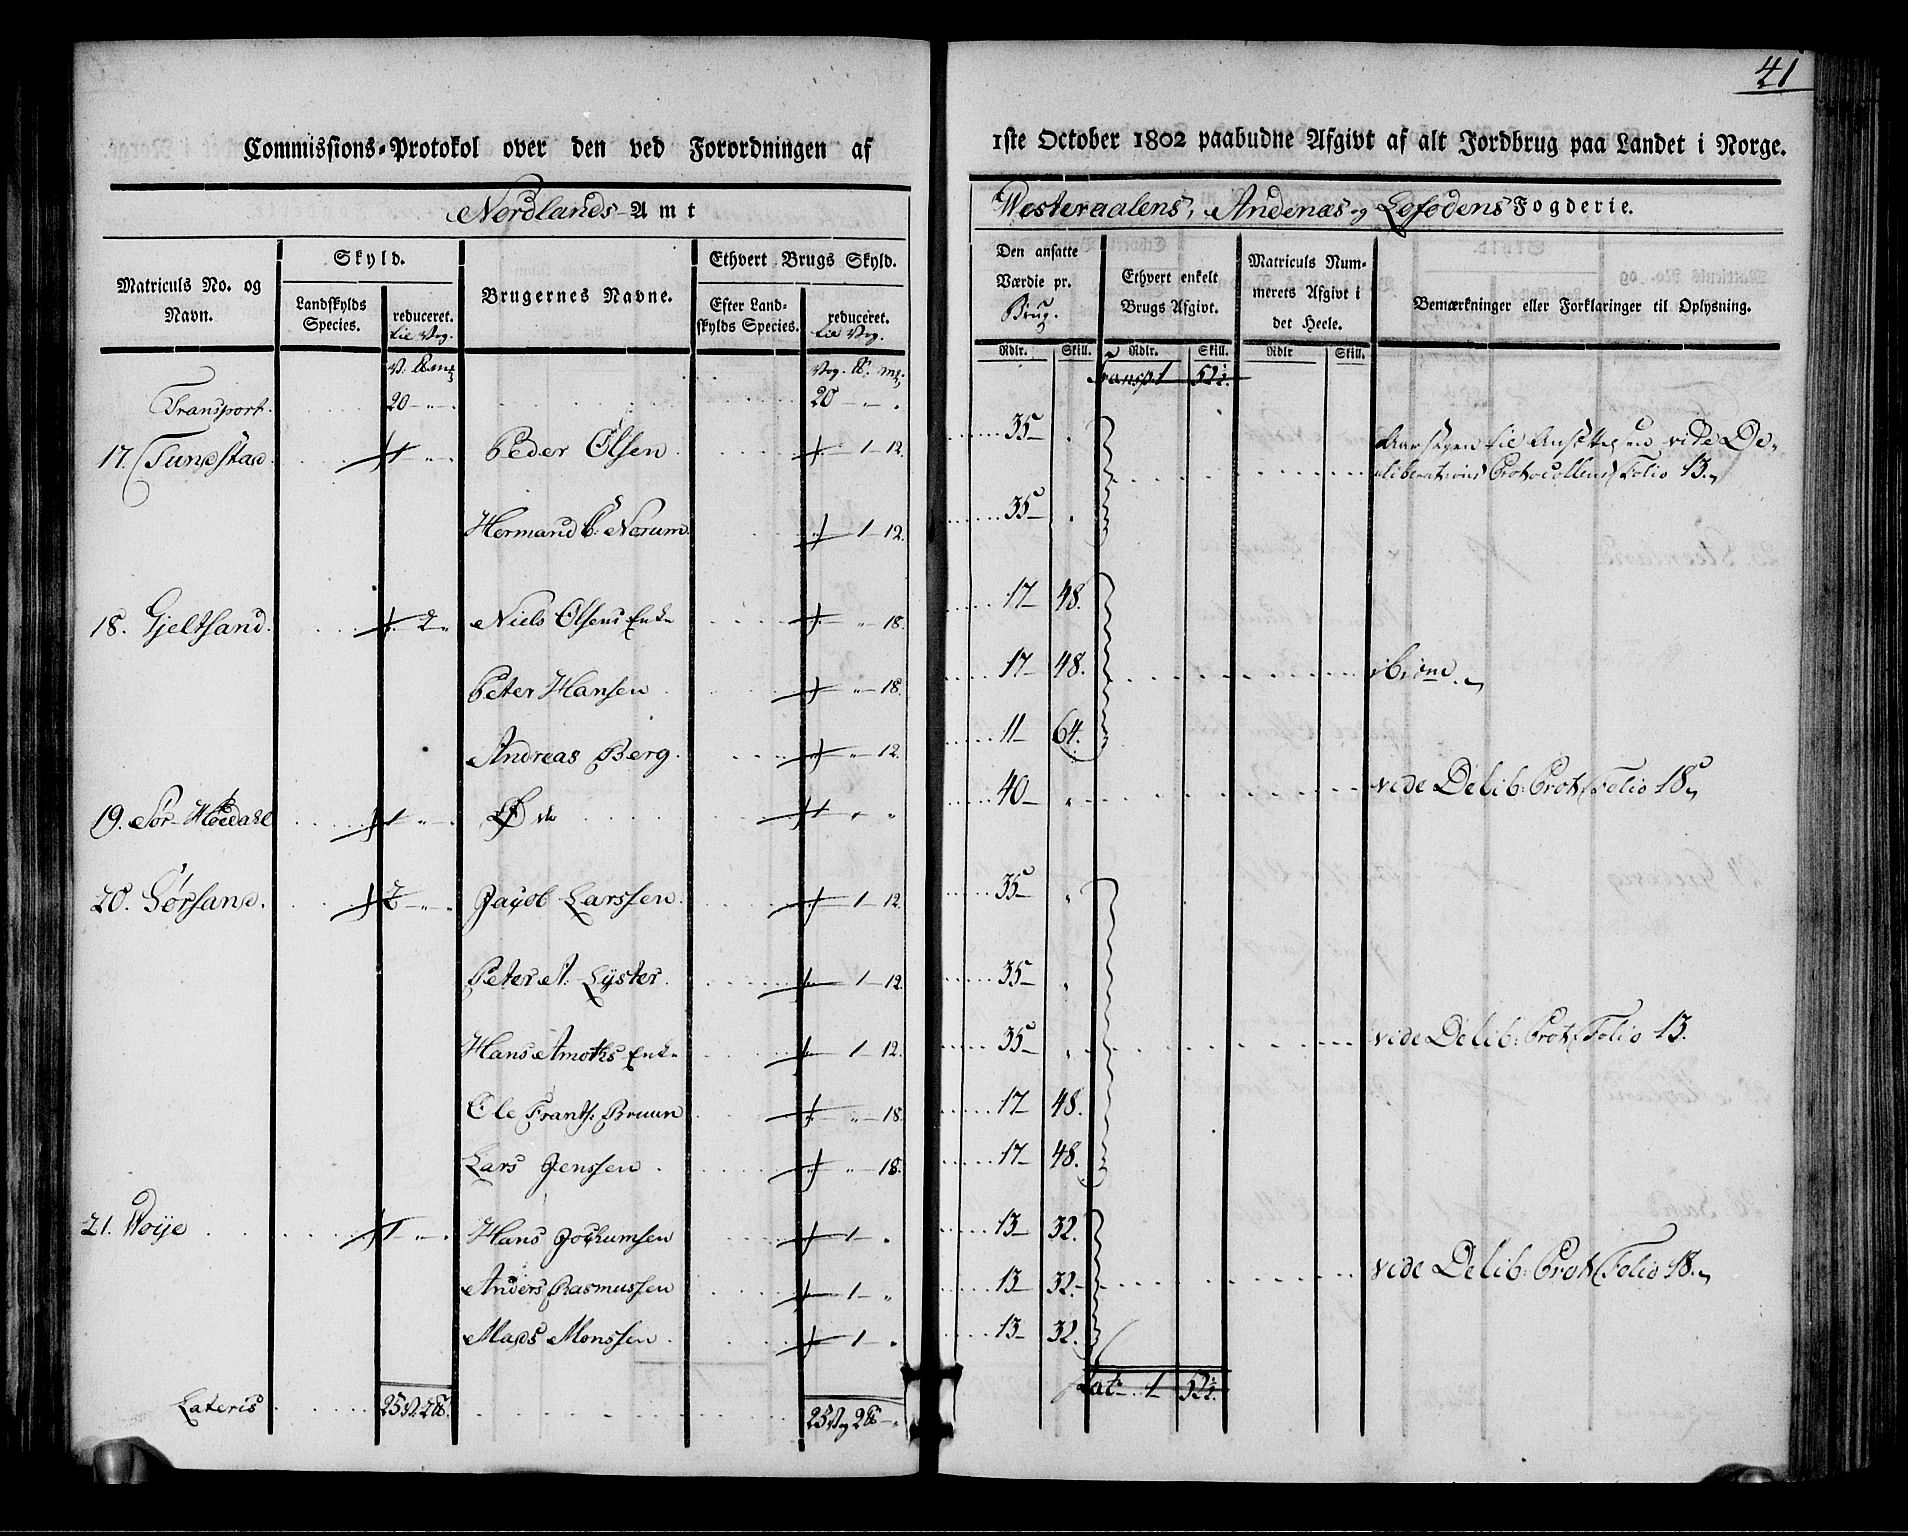 41
Commissions-Protokol over den ved Forordningen af
1ste October 1802 paabudne Afgivt af alt Jordbrug paa Landet i Norge.
Nordlands-Amt
Westeraalens, Andenæs og Lofodens Fogderie.
Matriculs No. og Navn.
Skyld.
Landskylds Species.
reduceret. til Vog.
Brugernes Navne.
Ethvert Brugs Skyld.
Efter Landskylds Species.
reduceret. til Vog.
Den ansatte Værdie pr. Brug.
Ethvert enkelt Brugs Afgivt.
Matriculs Nummerets Afgivt i det Heele.
Bemærkninger eller Forklaringer til Oplysning.
Rdlr. Skill. Rdlr. Skill. Rdlr Skill.
Transport. 20 - " - . 20 - " - . Transp. 1 52½.
17. Tundstad 1 " Peder Olsen 1 - 12. 35 -
Aarsagen til Ansættelsen vide De-
liberations Protocollens Folio 13.
Hermand B: Norum 1 - 12. 35 -
18. Gjeltsand. 2 " Niels Olsens Enke " - 18. 17 - 48.
Peter Hansen " - 18. 17 - 48. ibidem.
Andreas Berg. " - 12. 11 - 64.
19. Sør-Høedahl 1 " Øde 1 " " 40 - " vide Delib: Prot: Folio 18
20. Sørsand. 2 - " - " Jacob Larssen. 1 - 12. 35 - "
Peter A. Lyster. 1 - 12. 35 - "
Hans Amoths Enke 1 - 12. 35 - " vide Delib: Prot: Folio 13.
Ole Frants: Bruun " - 18. 17 - 48.
Lars Jenssen " - 18. 17 - 48.
21. Woije 1 - " - . Hans Jochumsen 1 - " 13 - 32.
Anders Rasmussen 1 - " 13 - 32. vide Delib: Prot: Folio 18.
Mads Monssen 1 - " 13 - 32.
Lateris 25 V. 2 25 Vog 2 - Lat: 1 52½.